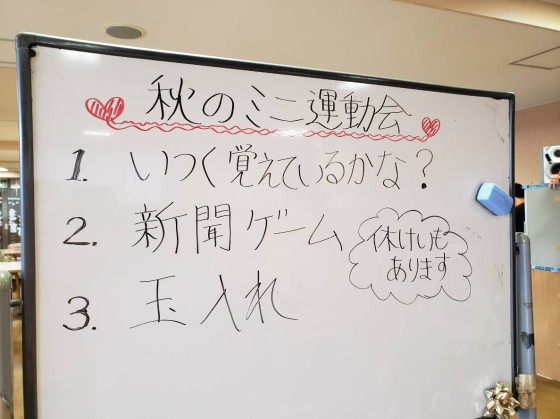 秋のミニ運動会
1. いつく覚えているかな？
2. 新聞ゲーム
休けいも
あります
3. 玉入れ